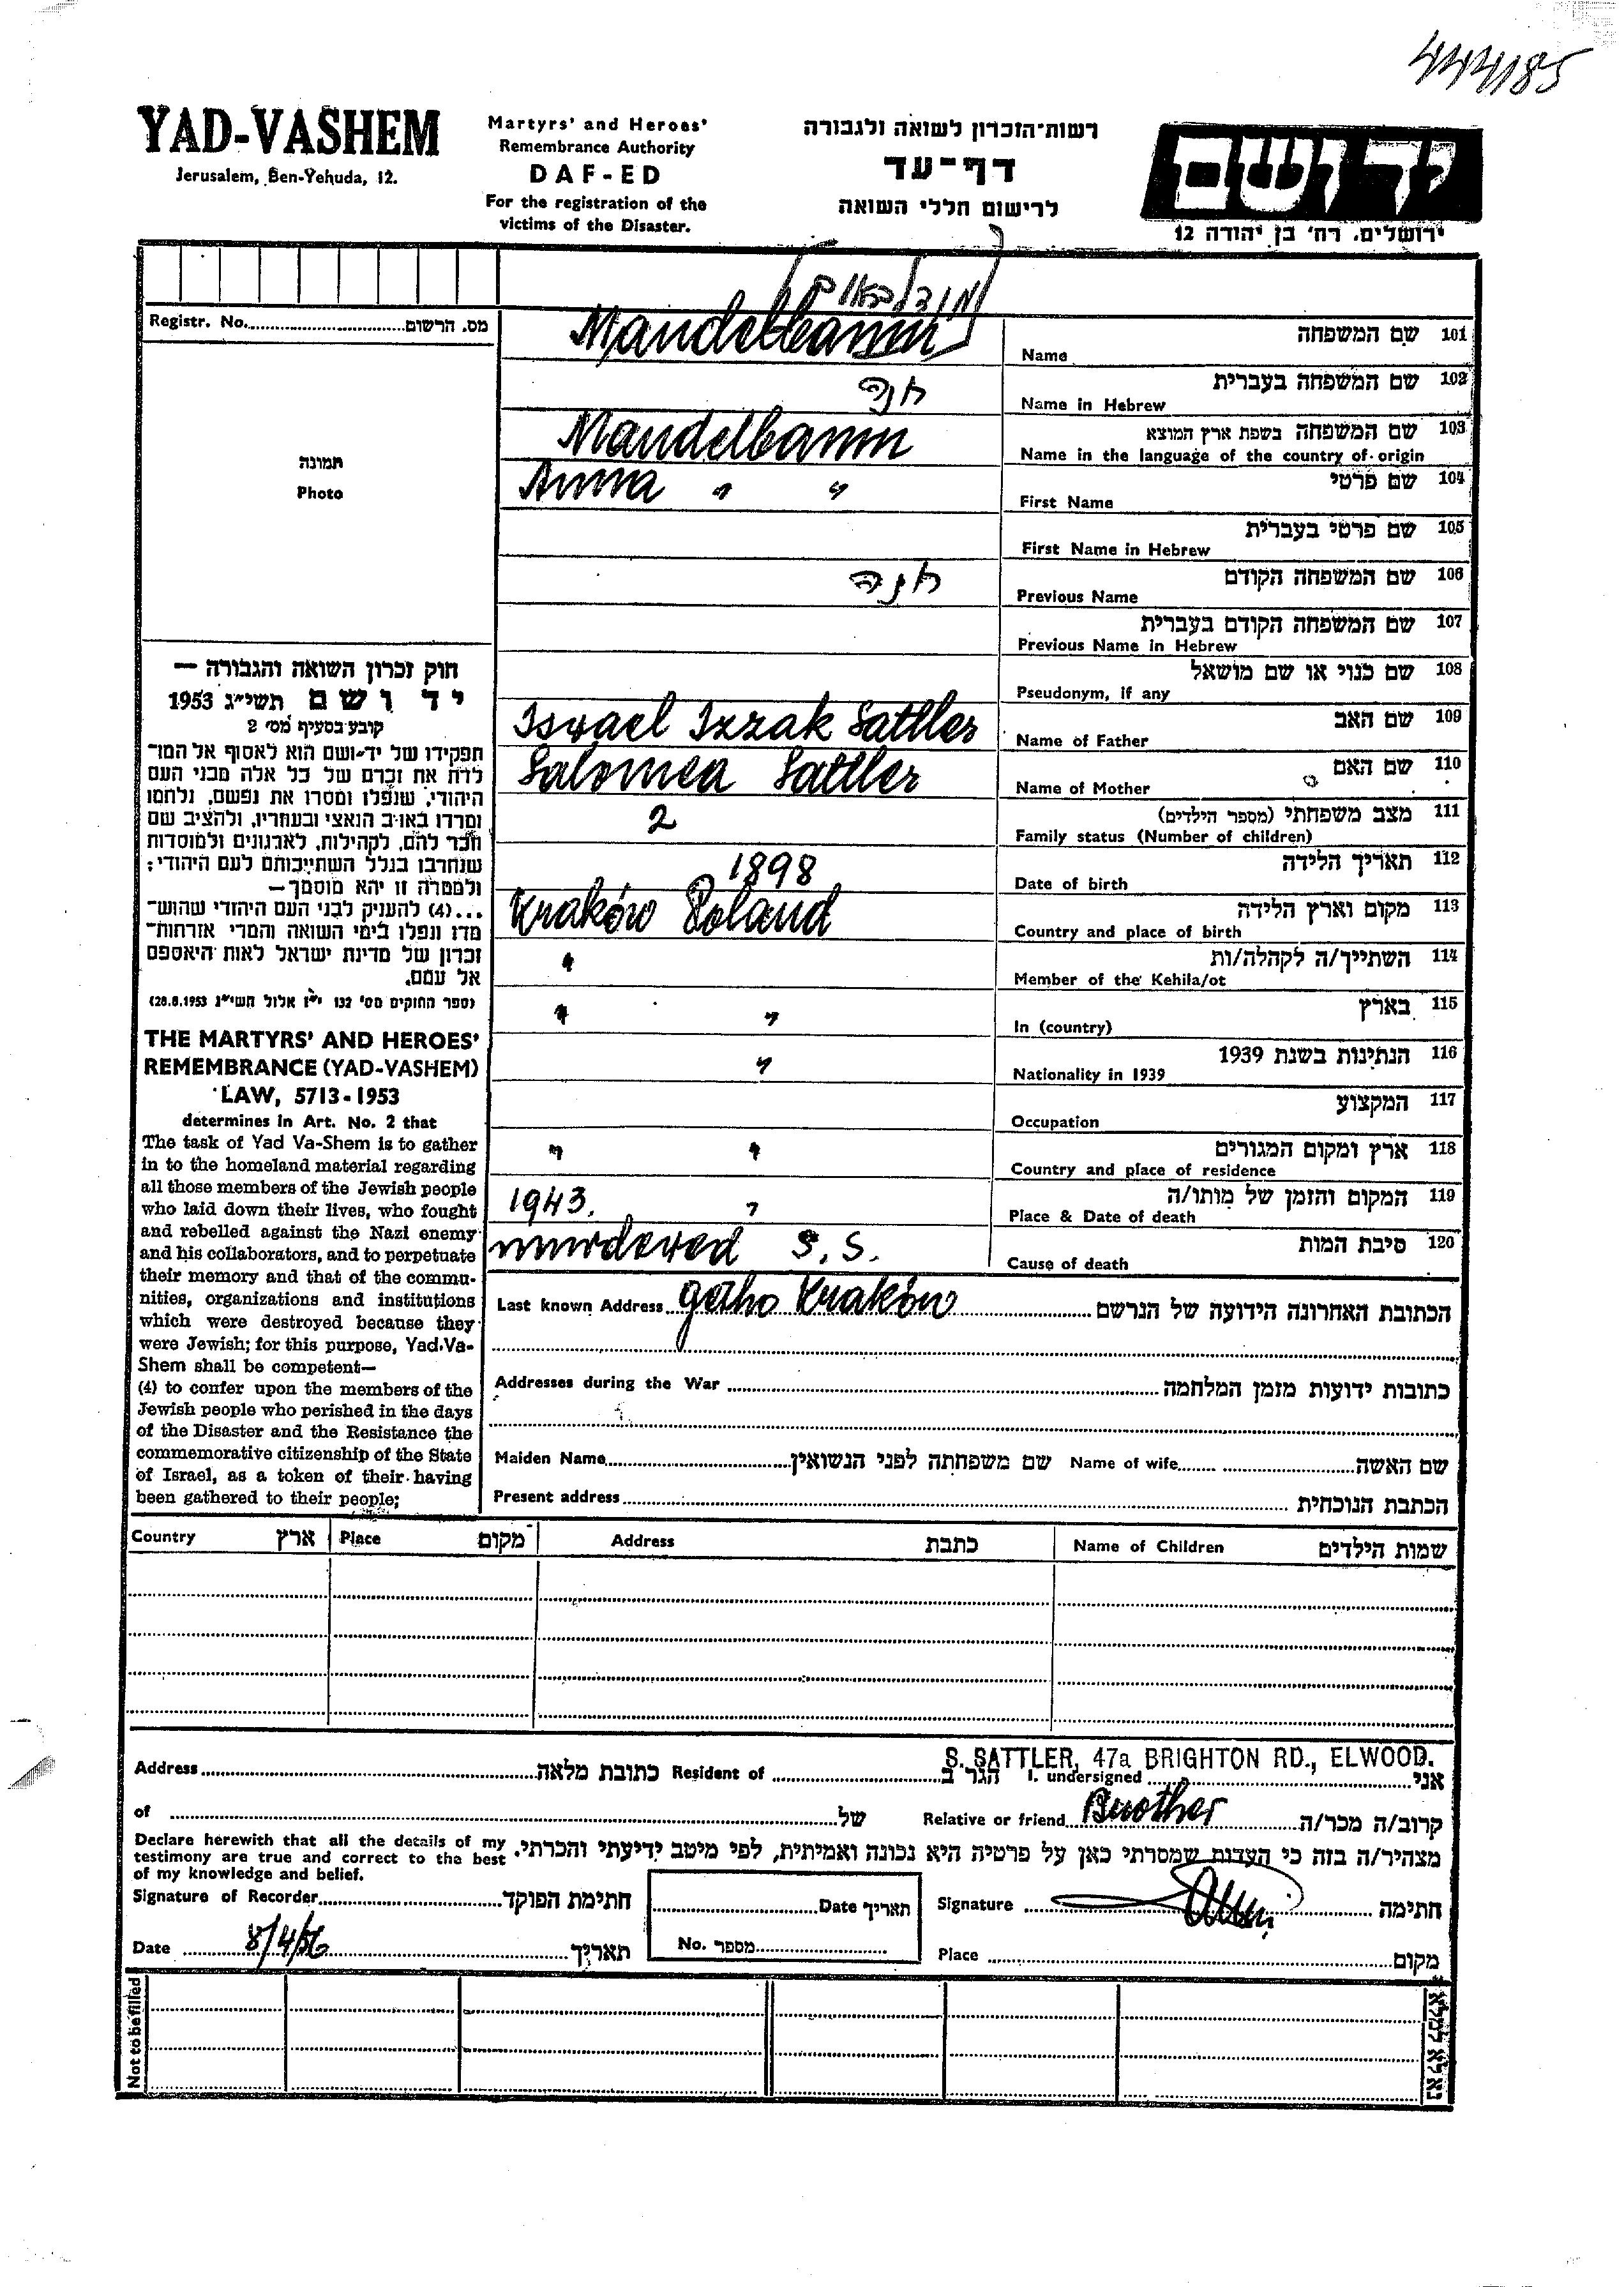 444185
YAD-VASHEM
Jerusalem, Ben-Yehuda, 12.
Martyrs' and Heroes'
Remembrance Authority
DAF-ED
For the registration of the
victims of the Disaster.
רשות-הזכרון לשואה ולגבורה
דף-עד
לרישום חללי השואה
יד ושם
ירושלים, רח' בן יהודה 12
Registr. No. מס. הרשום
תמונה
Photo
חוק זכרון השואה והגבורה —
יד ושם תשי״ג 1953
קובע בסעיף מס׳ 2
תפקידו של יד-ושם הוא לאסוף אל המו-
לדת את זכרם של כל אלה מבני העם
היהודי, שנפלו ומסרו את נפשם, נלחמו
ומרדו באויב הנאצי ובעוזריו, ולהציב שם
וזכר להם, לקהילות, לארגונים ולמוסדות
שנחרבו בגלל השתייכותם לעם היהודי;
ולמטרה זו יהא מוסמך —
...(4) להעניק לבני העם היהודי שהוש-
מדו ונפלו בימי השואה והמרי אזרחות-
זכרון של מדינת ישראל לאות היאספם
אל עמם.
(ספר החוקים מס׳ 132 י״ז אלול תשי״ג 28.8.1953)
THE MARTYRS' AND HEROES'
REMEMBRANCE (YAD-VASHEM)
LAW, 5713-1953
determines in Art. No. 2 that
The task of Yad Va-Shem is to gather
in to the homeland material regarding
all those members of the Jewish people
who laid down their lives, who fought
and rebelled against the Nazi enemy
and his collaborators, and to perpetuate
their memory and that of the commu-
nities, organizations and institutions
which were destroyed because they
were Jewish; for this purpose, Yad-Va-
Shem shall be competent—
(4) to confer upon the members of the
Jewish people who perished in the days
of the Disaster and the Resistance the
commemorative citizenship of the State
of Israel, as a token of their having
been gathered to their people;
מנדלבאום
Mandelbaum Name שם המשפחה 101
חנה Name in Hebrew שם המשפחה בעברית 102
Mandelbaum Name in the language of the country of origin שם המשפחה בשפת ארץ המוצא 103
Anna " " First Name שם פרטי 104
First Name in Hebrew שם פרטי בעברית 105
חנה Previous Name שם המשפחה הקודם 106
Previous Name in Hebrew שם המשפחה הקודם בעברית 107
Pseudonym, if any שם כנוי או שם מושאל 108
Israel Izzak Sattler Name of Father שם האב 109
Salomea Sattler Name of Mother שם האם 110
2 Family status (Number of children) מצב משפחתי (מספר הילדים) 111
1898 Date of birth תאריך הלידה 112
Kraków Poland Country and place of birth מקום וארץ הלידה 113
" Member of the Kehila/ot השתייך/ה לקהלה/ות 114
" " In (country) בארץ 115
" Nationality in 1939 הנתינות בשנת 1939 116
Occupation המקצוע 117
" " Country and place of residence ארץ ומקום המגורים 118
1943. " Place & Date of death המקום והזמן של מותו/ה 119
murdered S.S. Cause of death סיבת המות 120
Last known Address getho Kraków הכתובת האחרונה הידועה של הנרשם
Addresses during the War כתובות ידועות מזמן המלחמה
Maiden Name שם משפחתה לפני הנשואין Name of wife שם האשה
Present address הכתבת הנוכחית
Country ארץ Place מקום Address כתבת Name of Children שמות הילדים
S. SATTLER, 47a BRIGHTON RD., ELWOOD.
Address כתובת מלאה Resident of הגר ב I. undersigned אני
of של Relative or friend Brother קרוב/ה מכר/ה
Declare herewith that all the details of my
testimony are true and correct to the best
of my knowledge and belief.
מצהיר/ה בזה כי העדות שמסרתי כאן על פרטיה היא נכונה ואמיתית, לפי מיטב ידיעתי והכרתי.
Signature of Recorder חתימת הפוקד Date תאריך Signature חתימה
Date 8/4/56 תאריך No. מספר Place מקום
Not to be filled
נא לא למלא